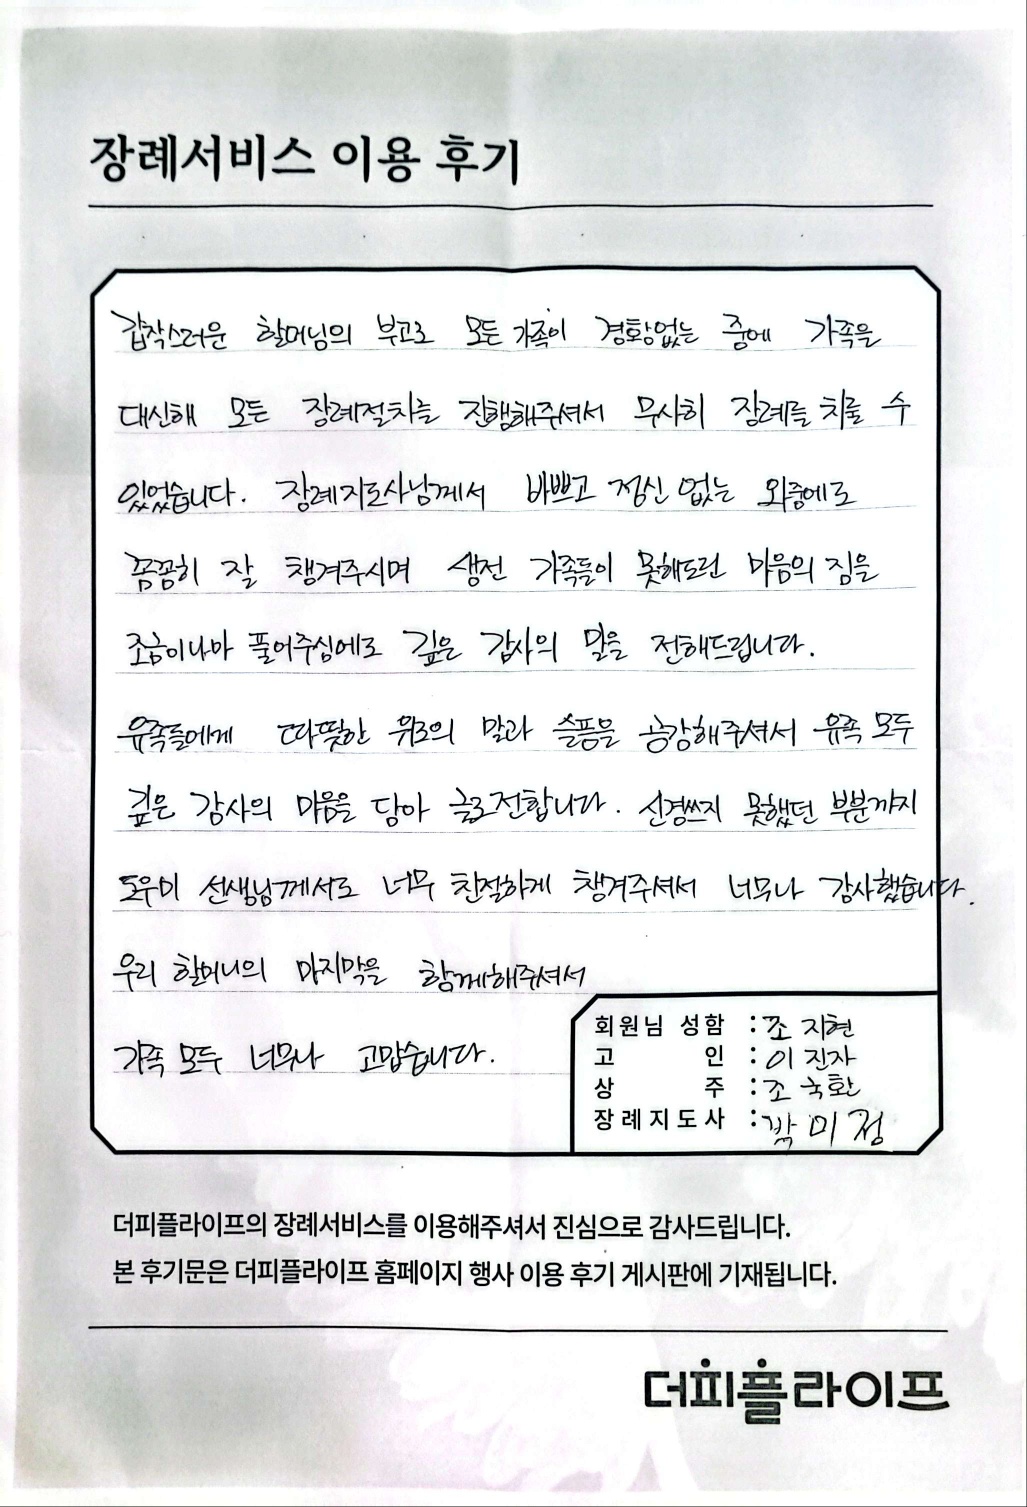 장례서비스 이용 후기
갑작스러운 할머님의 부고로 모든 가족이 경황없는 중에 가족을
대신해 모든 장례절차를 진행해주셔서 무사히 장례를 치룰 수
있었습니다. 장례지도사님께서 바쁘고 정신 없는 와중에도
꼼꼼히 잘 챙겨주시며 생전 가족들이 못해드린 마음의 짐을
조금이나마 풀어주심에도 깊은 감사의 말을 전해드립니다.
유족들에게 따뜻한 위로의 말과 슬픔을 공감해주셔서 유족 모두
깊은 감사의 마음을 담아 글로전합니다. 신경쓰지 못했던 부분까지
도우미 선생님께서도 너무 친절하게 챙겨주셔서 너무나 감사했습니다.
우리 할머니의 마지막을 함께해주셔서
가족 모두 너무나 고맙습니다.
회원님 성함 : 조 지현
고 인 : 이 진자
상 주 : 조 국환
장례지도사 : 박 미 정
더피플라이프의 장례서비스를 이용해주셔서 진심으로 감사드립니다.
본 후기문은 더피플라이프 홈페이지 행사 이용 후기 게시판에 기재됩니다.
더피플라이프